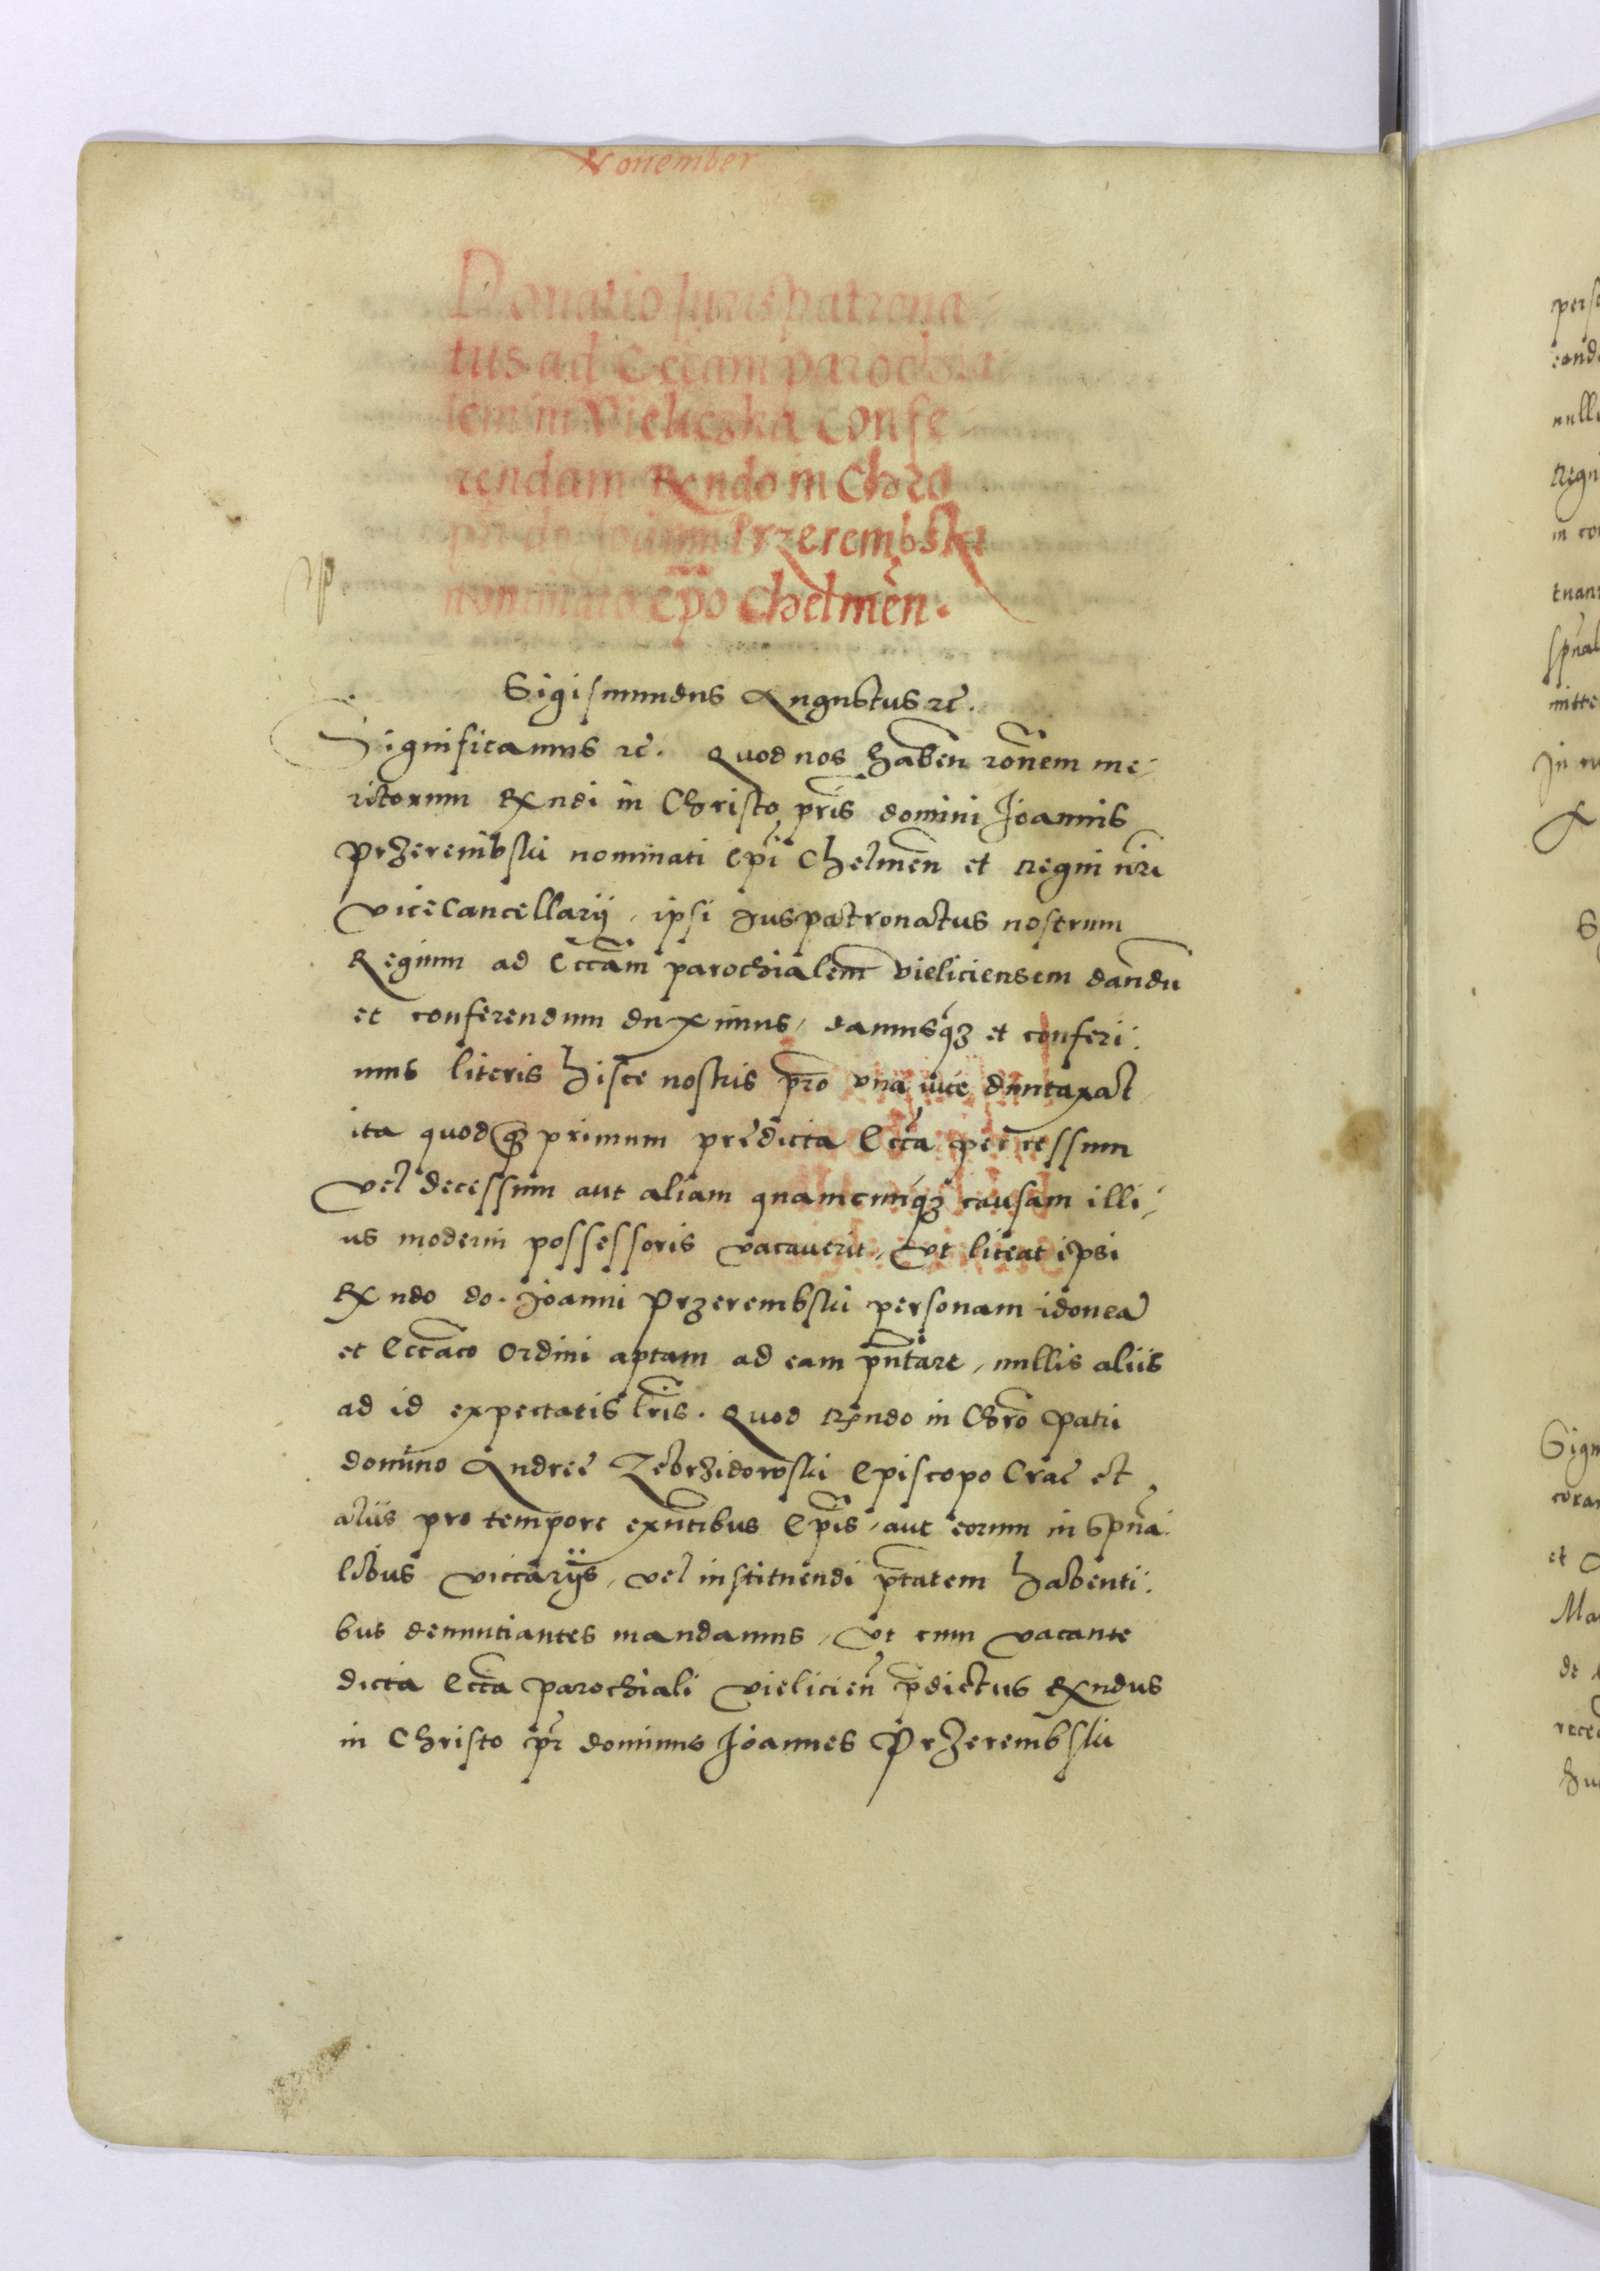 Nouember
Donatio Iurispatrona-
tus ad Eccãm parochia
lem in Vieliczka confe-
rendam Rxndo in Chro
prĩ do. Ioanni Przerembski
nominato Epõ Chelmeñ.
Sigismundus Augustus rc̃.
Significamus rc̃. Quod nos habeñ rõnem me-
ritorum Rxndi in Christo prĩs domini Ioannis
Przerembski nominati Epĩ Chelmeñ et Regni nrĩ
Vicecancellarij, ipsi Juspatronatus nostrum
Regium ad Eccãm parochialem Vieliciensem dandũ
et conferendum duximus, damusq́ꝫ et conferi-
mus literis hisce nostris pro vna vice duntaxat
ita quod q̃ primum predicta Eccã per cessum
vel decessum aut aliam quamcunq́ꝫ causam illi-
us moderni possessoris vacauerit, Vt liceat ipsi
Rxndo do. Joanni Przerembski personam idoneã
et Eccãco ordini aptam ad eam pñtare, nullis aliis
ad id expectatis lrĩs. Quod Rxndo in Chrõ Patri
domino Andreę Zebrzidowski Episcopo Crac̃ et
aliis pro tempore exñtibus Epĩs, aut eorum in Spña-
libus viccarijs, vel instituendi ptãtem habenti-
bus denuntiantes mandamus, Vt cum vacante
dicta Eccã parochiali Vielicieñ p̃dictus Rxndus
in Christo pr̃ dominus Joannes Przerembski